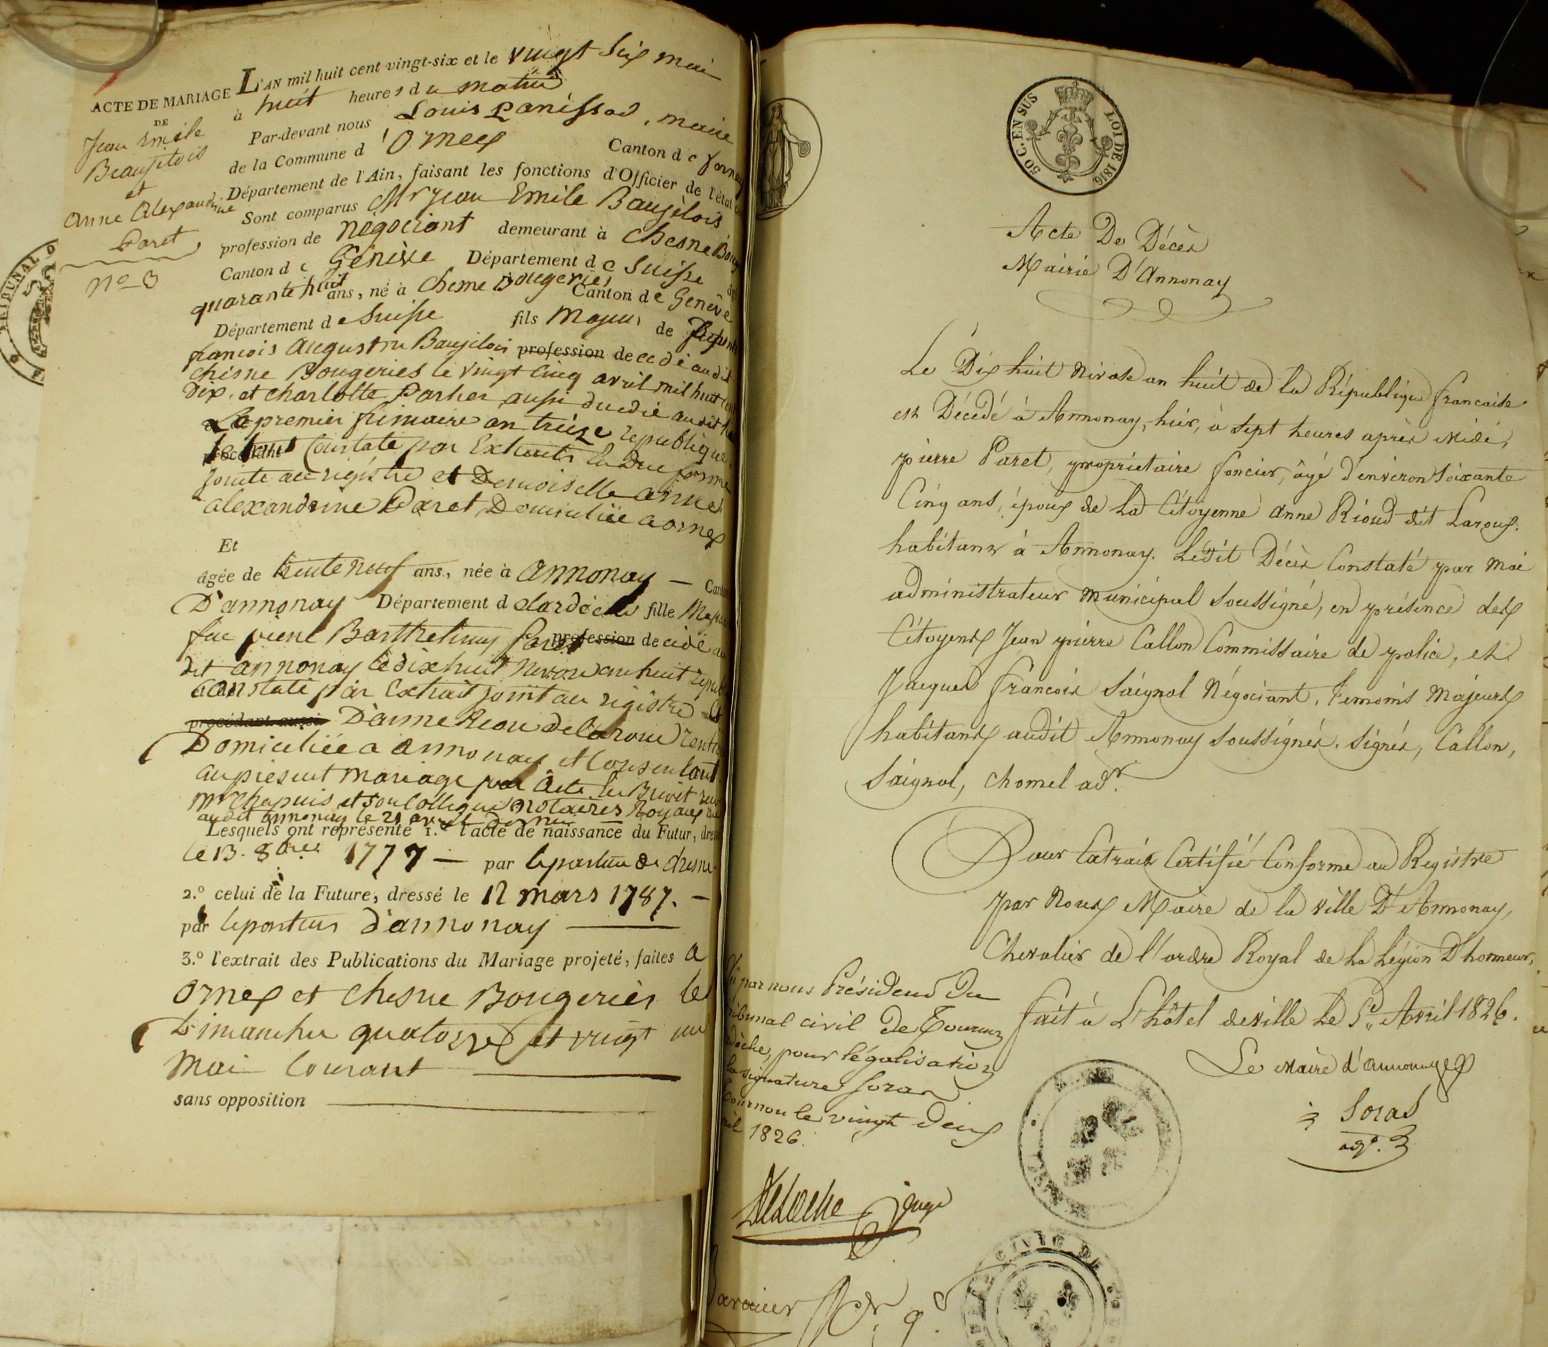 ACTE DE MARIAGE
DE
Jean Emile
Baujelois
et
anne Alexandrine
Paret
nº 3
L'AN mil huit cent vingt-six et le vingt six mai
à huit heures du matin
Par-devant nous Louis Panissod, maire
de la Commune d'Ornex Canton de
Département de l'Ain, faisant les fonctions d'Officier de l'état
Sont comparus Mr jean Emile Baujelois
profession de négociant demeurant à Chesne
Canton de Genève Département de Suisse
quarante huit ans, né à Chesne Bougeries Canton de Genève
Département de Suisse fils Majeur de
françois Augustin Baujelois profession de cedé audit
Chesne Bougeries le vingt cinq avril mil huit cent
Dix, et charlotte aussi audit
Le premier frimaire an treize republique
le tout Constaté par Extraits en due forme
joints au régistre et Demoiselle anne
alexandrine Paret, Domiciliée a ornex
Et
âgée de trente neuf ans, née à annonay
D'annonay Département de Lardèche fille
feu piere Barthelemy Paret profession decedé au
dit annonay le dix huit nivose an huit
Constaté par Extrait joint au régistre et
procédant aussi D'anne
Domiciliée a annonay et Consentant
au présent mariage par Acte en Brevet
Mr Chapuis et son Collegue notaires Royaux
audit annonay le 21 avril dernier
Lesquels ont représenté 1.º l'acte de naissance du Futur,
le 13. 8bre 1777 par le pasteur de chesne
2.º celui de la Future, dressé le 12 mars 1787.
par d'annonay
3.º l'extrait des Publications du Mariage projeté, faites a
Ornex et Chesne Bougeries le
Dimanche quatorze et vingt un
mai Courant
sans opposition
TRIBUNAL
50 C. EN SUS
LOI DE 1816
Acte De Décès
Mairie D'Annonay
Le Dix huit Nivose an huit de la République francaise
est Décédé à Annonay, hier, à sept heures après Midi,
pierre Paret, propriétaire foncier, âgé d'environ soixante
Cinq ans, époux de la Citoyenne Anne Rioud dit Larous.
habitant à Annonay. Ledit Décès Constaté par Moi
administrateur Municipal Soussigné, en présence des
Citoyens Jean pierre Callon Commissaire de police, et
Jacques francois Saignol Négociant, Temoins Majeurs
habitans audit Annonay Soussignés. Signés, Callon,
Saignol, Chomel adr.
Pour Extrait Certifié Conforme au Registre
par Nous Maire de la ville D'Annonay,
Chevalier de l'ordre Royal de la Légion D'honneur,
fait à L'hôtel deville Le 1er Avril 1826.
Le Maire d'annonay
Soras
adj.
Vû par nous Président Du
tribunal civil De Tournon
pour légalisation
la signature Soras
Tournon le vingt deux
1826.
juge
CIVIL DE